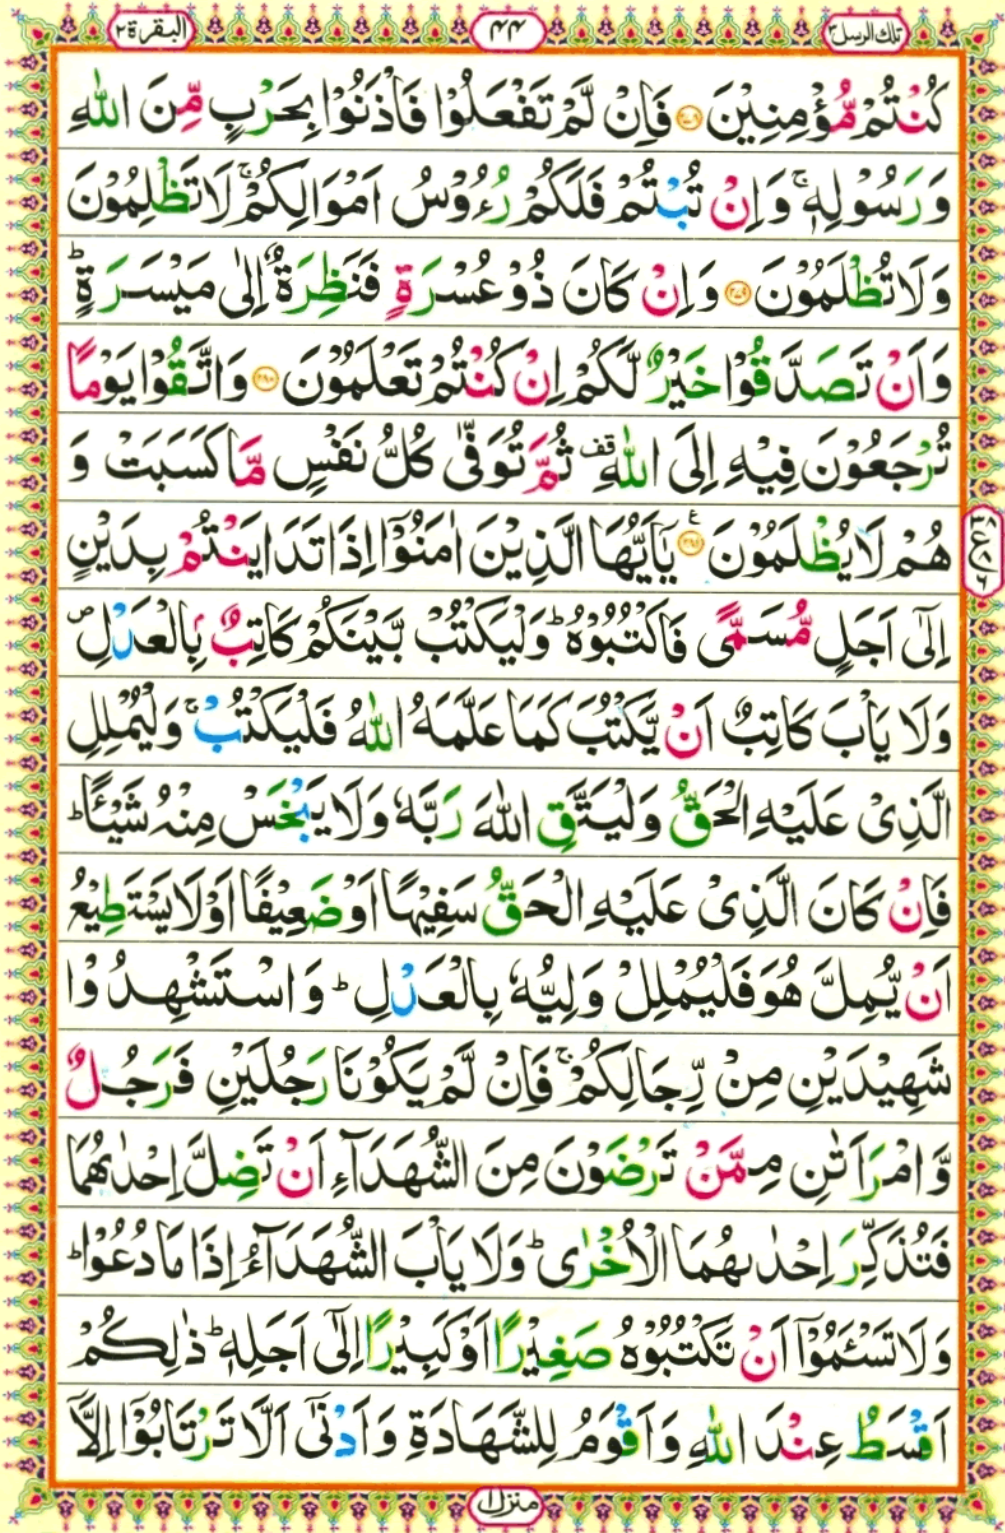 تلك الرسل ٣
٤٤
البقرة ٢
كُنْتُمْ مُّؤْمِنِيْنَ ۝۲۷۸ فَاِنْ لَّمْ تَفْعَلُوْا فَاْذَنُوْا بِحَرْبٍ مِّنَ اللّٰهِ
وَ رَسُوْلِهٖ ۚ وَ اِنْ تُبْتُمْ فَلَكُمْ رُءُوْسُ اَمْوَالِكُمْ ۚ لَا تَظْلِمُوْنَ
وَ لَا تُظْلَمُوْنَ ۝۲۷۹ وَ اِنْ كَانَ ذُوْ عُسْرَةٍ فَنَظِرَةٌ اِلٰى مَيْسَرَةٍ ؕ
وَ اَنْ تَصَدَّقُوْا خَيْرٌ لَّكُمْ اِنْ كُنْتُمْ تَعْلَمُوْنَ ۝۲۸۰ وَ اتَّقُوْا يَوْمًا
تُرْجَعُوْنَ فِيْهِ اِلَى اللّٰهِ قف ثُمَّ تُوَفّٰى كُلُّ نَفْسٍ مَّا كَسَبَتْ وَ
هُمْ لَا يُظْلَمُوْنَ ۝۲۸۱ ع يٰۤاَيُّهَا الَّذِيْنَ اٰمَنُوْۤا اِذَا تَدَايَنْتُمْ بِدَيْنٍ
اِلٰۤى اَجَلٍ مُّسَمًّى فَاكْتُبُوْهُ ؕ وَلْيَكْتُبْ بَّيْنَكُمْ كَاتِبٌۢ بِالْعَدْلِ ۪
وَلَا يَاْبَ كَاتِبٌ اَنْ يَّكْتُبَ كَمَا عَلَّمَهُ اللّٰهُ فَلْيَكْتُبْ ۚ وَلْيُمْلِلِ
الَّذِيْ عَلَيْهِ الْحَقُّ وَلْيَتَّقِ اللّٰهَ رَبَّهٗ وَلَا يَبْخَسْ مِنْهُ شَيْـًٔا ؕ
فَاِنْ كَانَ الَّذِيْ عَلَيْهِ الْحَقُّ سَفِيْهًا اَوْ ضَعِيْفًا اَوْ لَا يَسْتَطِيْعُ
اَنْ يُّمِلَّ هُوَ فَلْيُمْلِلْ وَلِيُّهٗ بِالْعَدْلِ ؕ وَ اسْتَشْهِدُوْا
شَهِيْدَيْنِ مِنْ رِّجَالِكُمْ ۚ فَاِنْ لَّمْ يَكُوْنَا رَجُلَيْنِ فَرَجُلٌ
وَّ امْرَاَتٰنِ مِمَّنْ تَرْضَوْنَ مِنَ الشُّهَدَآءِ اَنْ تَضِلَّ اِحْدٰىهُمَا
فَتُذَكِّرَ اِحْدٰىهُمَا الْاُخْرٰى ؕ وَلَا يَاْبَ الشُّهَدَآءُ اِذَا مَا دُعُوْا ؕ
وَلَا تَسْـَٔمُوْۤا اَنْ تَكْتُبُوْهُ صَغِيْرًا اَوْ كَبِيْرًا اِلٰۤى اَجَلِهٖ ؕ ذٰلِكُمْ
اَقْسَطُ عِنْدَ اللّٰهِ وَ اَقْوَمُ لِلشَّهَادَةِ وَ اَدْنٰۤى اَلَّا تَرْتَابُوْۤا اِلَّاۤ
منزل ١